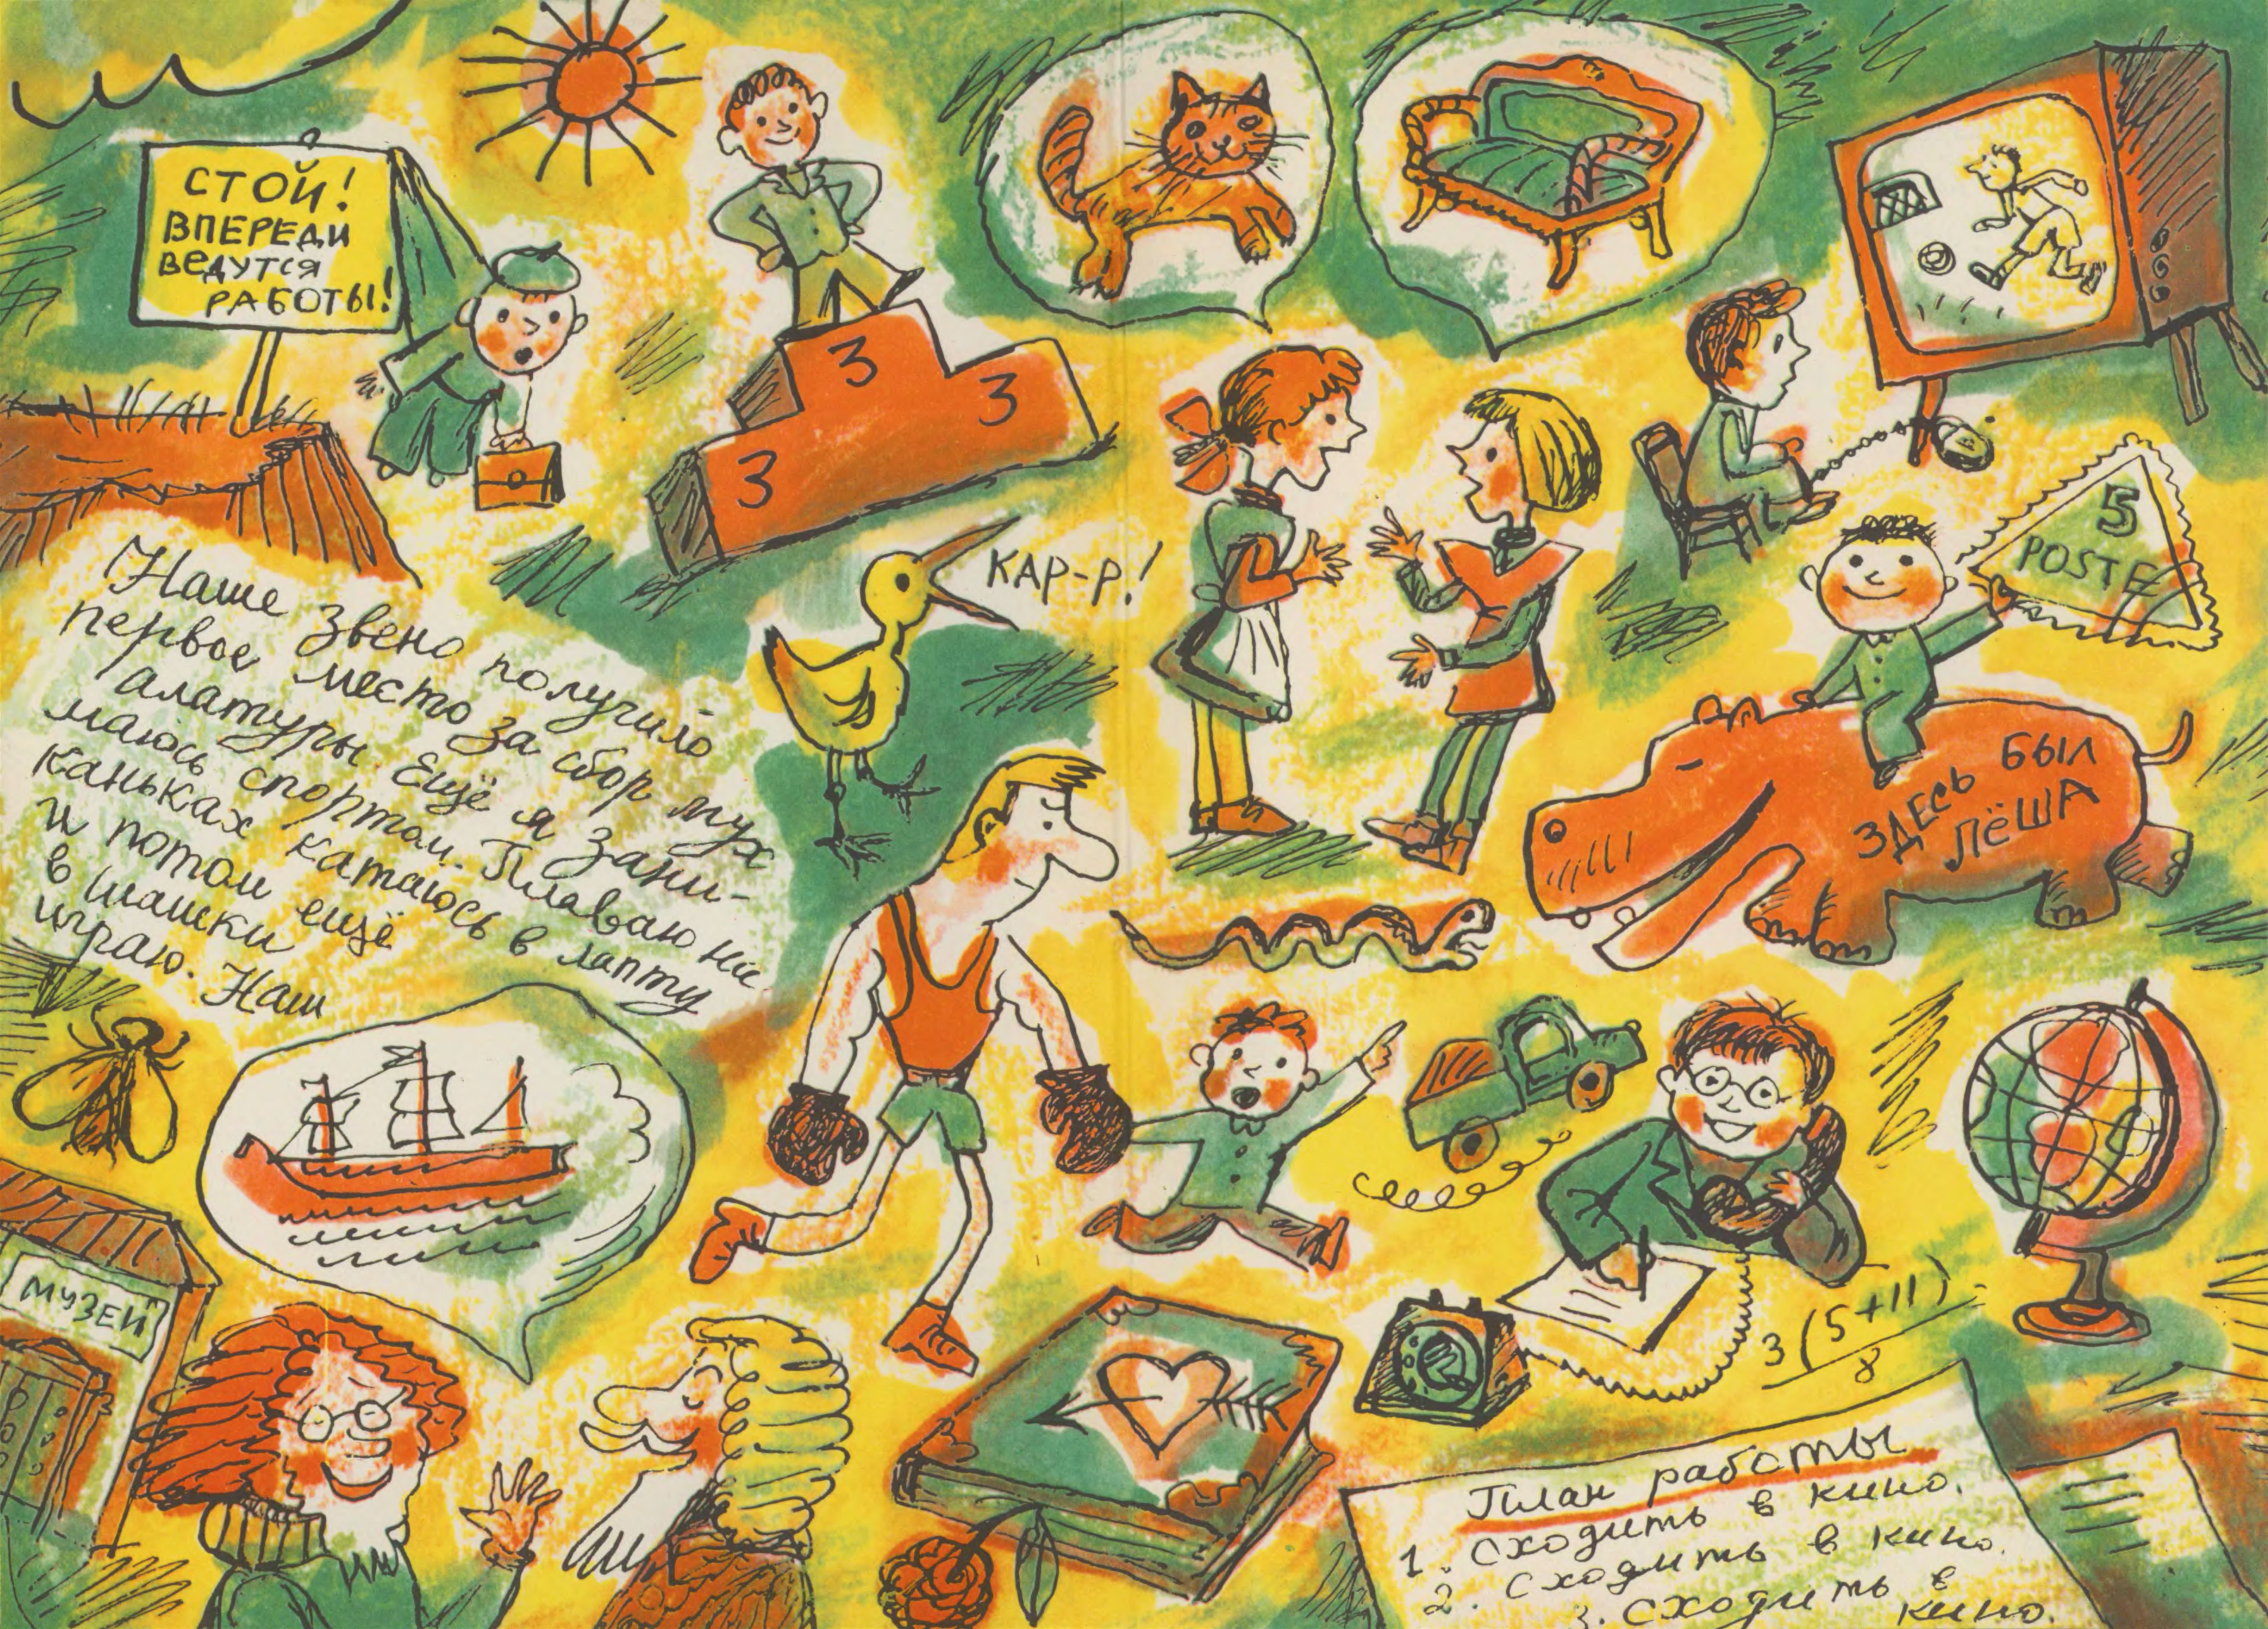 СТОЙ!
ВПЕРЕДИ
ВЕДУТСЯ
РАБОТЫ!
3
3
3
КАР-Р!
5
POSTE
ЗДЕСЬ БЫЛ
ЛЁША
Наше звено получило
первое место за сбор мух
алатуры. Ещё я зани-
маюсь спортом. Плаваю на
каньках катаюсь в лапту
и потом ещё
в шашки
играю. Наш
МУЗЕЙ
3(5+11)
8
План работы
1. Сходить в кино.
2. Сходить в кино.
3. Сходить в
кино.